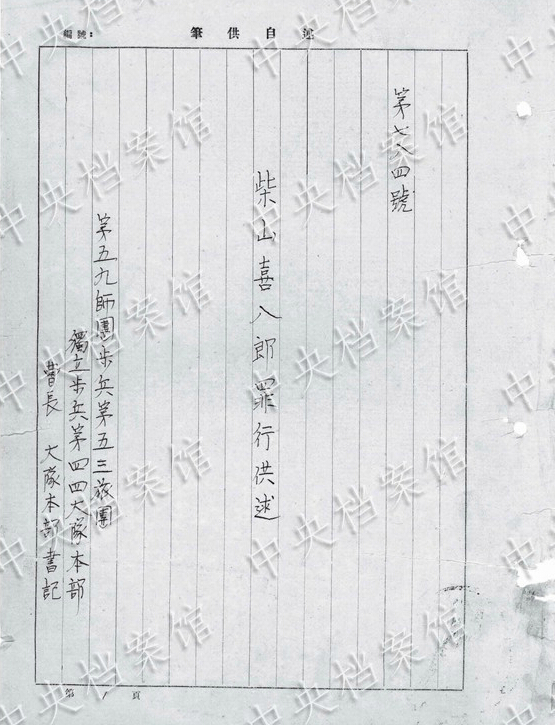 編號:
筆供自述
第七八四號
柴山喜八郎罪行供述
第五九師團步兵第五三旅團
獨立步兵第四四大隊本部
曹長 大隊本部書記
第 1 頁
中央档案馆